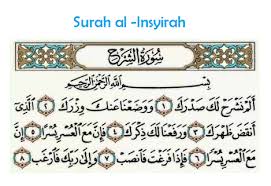 Surah al -Insyirah
سُورَةُ الشَّرْحِ
بِسْمِ اللَّهِ الرَّحْمَٰنِ الرَّحِيمِ
أَلَمْ نَشْرَحْ لَكَ صَدْرَكَ ١ وَوَضَعْنَا عَنكَ وِزْرَكَ ٢ الَّذِي
أَنقَضَ ظَهْرَكَ ٣ وَرَفَعْنَا لَكَ ذِكْرَكَ ٤ فَإِنَّ مَعَ الْعُسْرِ يُسْرًا ٥ إِنَّ
مَعَ الْعُسْرِ يُسْرًا ٦ فَإِذَا فَرَغْتَ فَانصَبْ ٧ وَإِلَىٰ رَبِّكَ فَارْغَب ٨